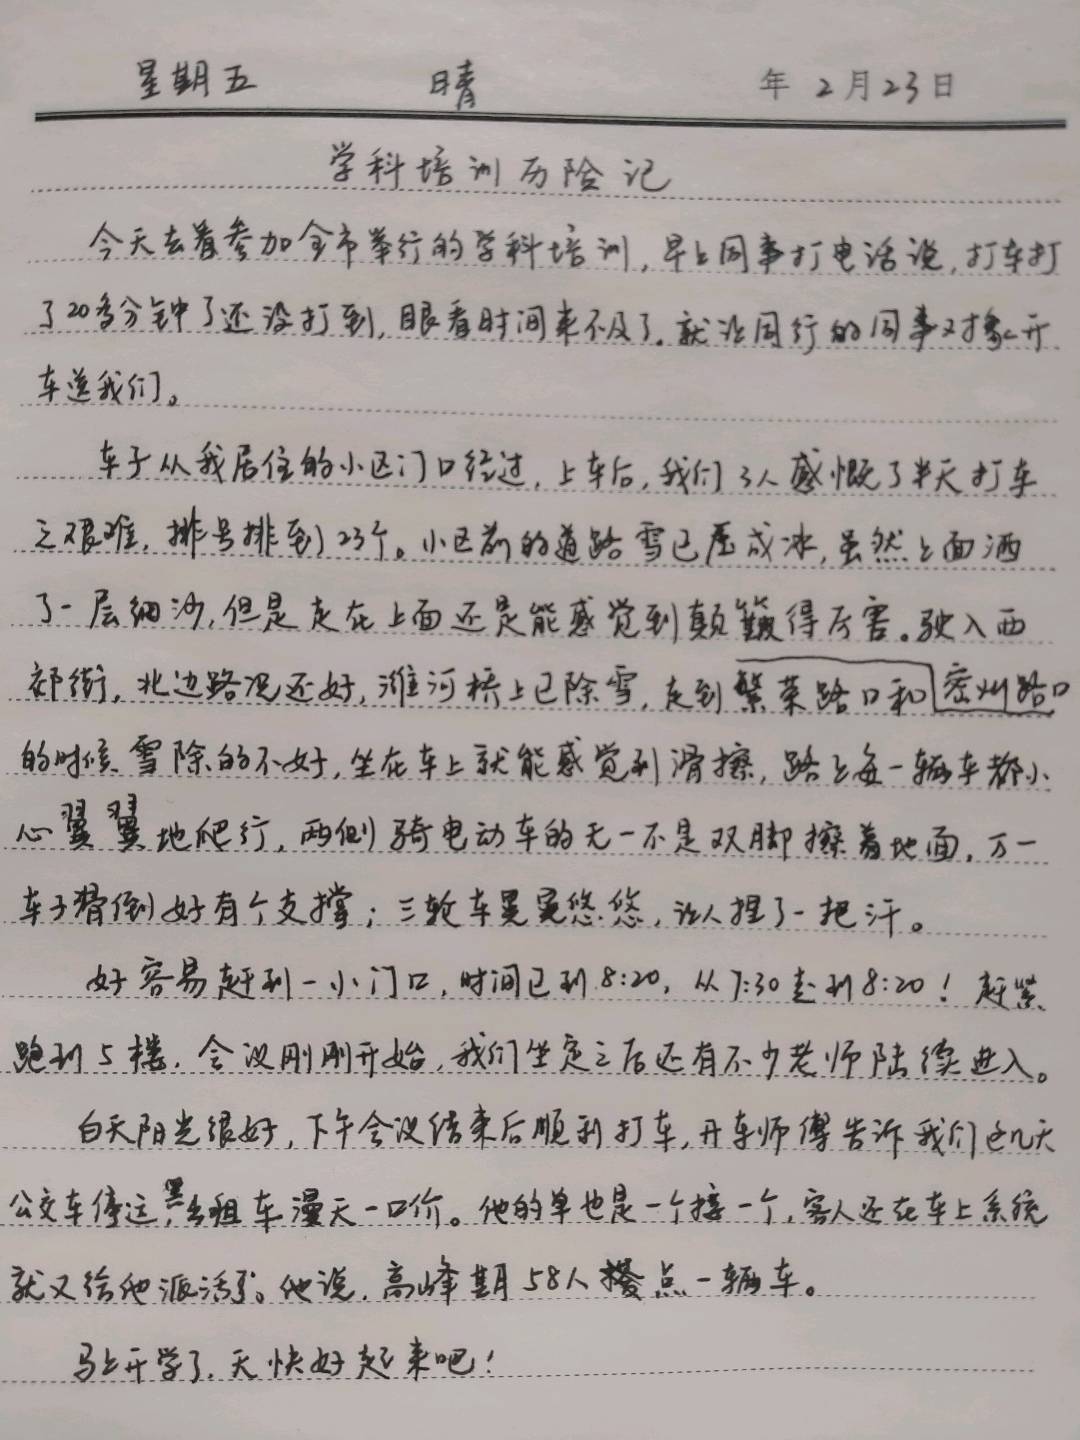 星期五 晴 年 2月23日
学科培训历险记
今天去着参加全市举行的学科培训,早上同事打电话说,打车打
了20多分钟了还没打到,眼看时间来不及了。就让同行的同事对象开
车送我们。
车子从我居住的小区门口经过,上车后,我们3人感慨了半天打车
之艰难,排号排到23个。小区前的道路雪已压成冰,虽然上面洒
了一层细沙,但是走在上面还是能感觉到颠簸得厉害。驶入西
郊街,北边路况还好,潍河桥上已除雪,走到繁荣路口和密州路口
的时候雪除的不好,坐在车上就能感觉到滑擦,路上每一辆车都小
心翼翼地爬行,两侧骑电动车的无一不是双脚擦着地面,万一
车子滑倒好有个支撑;三轮车晃晃悠悠,让人捏了一把汗。
好容易赶到一小门口,时间已到8:20,从7:30走到8:20!赶紧
跑到5楼,会议刚刚开始,我们坐定之后还有不少老师陆续进入。
白天阳光很好,下午会议结束后顺利打车,开车师傅告诉我们这几天
公交车停运,黑出租车漫天一口价。他的单也是一个接一个,客人还在车上系统
就又给他派活了。他说,高峰期58人拨点一辆车。
马上开学了,天快好起来吧!